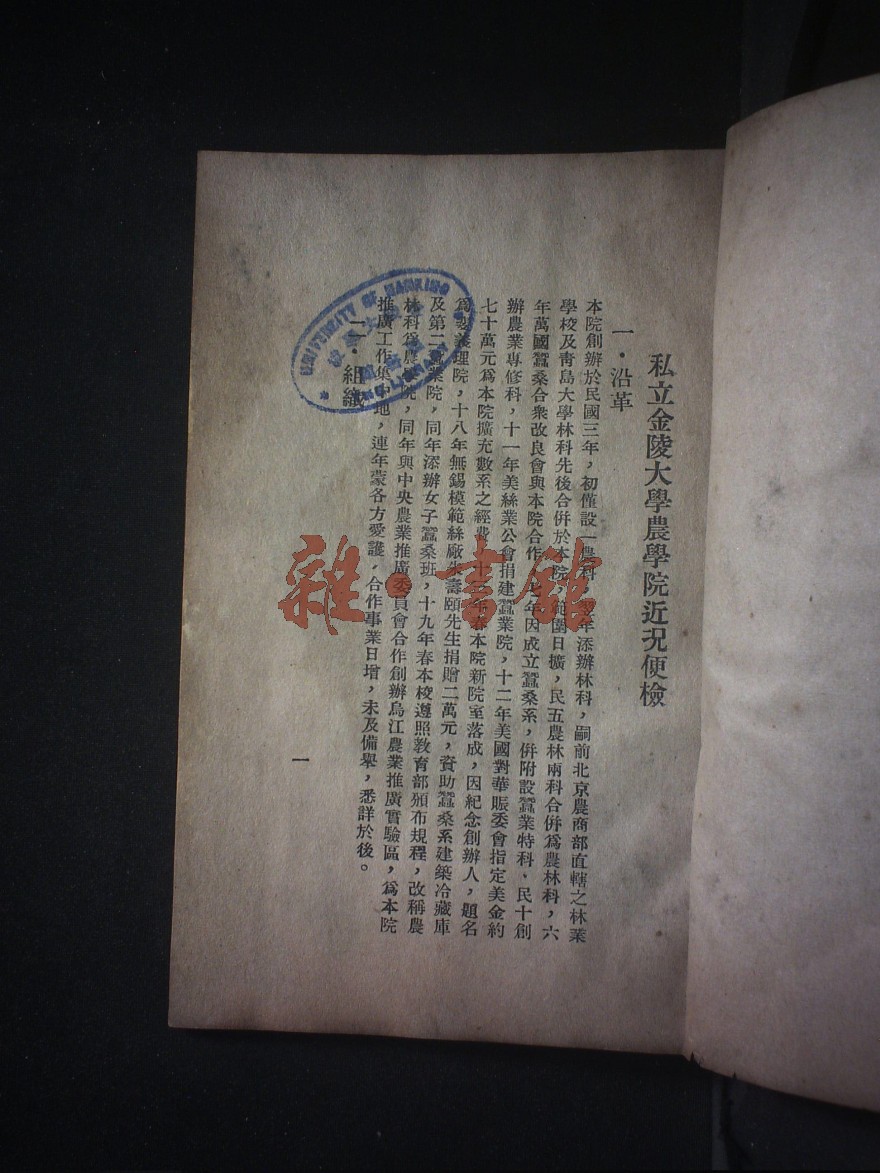 私立金陵大學農學院近況便檢
一・沿革
本院創辦於民國三年，初僅設一農科，翌年添辦林科，嗣前北京農商部直轄之林業
學校及靑島大學林科先後合併於本院，範圍日擴，民五農林兩科合併爲農林科，六
年萬國蠶桑合衆改良會與本院合作，七年因成立蠶桑系，併附設蠶業特科、民十創
辦農業專修科，十一年美絲業公會捐建蠶業院，十二年美國對華賑委會指定美金約
七十萬元爲本院擴充數系之經費，十三年春本院新院室落成，因紀念創辦人，題名
爲裴義理院，十八年無錫模範絲廠朱壽頤先生捐贈二萬元，資助蠶桑系建築冷藏庫
及第二蠶業院，同年添辦女子蠶桑班，十九年春本校遵照敎育部頒布規程，改稱農
林科爲農學院，同年與中央農業推廣委員會合作創辦烏江農業推廣實驗區，爲本院
推廣工作集中地，連年蒙各方愛護，合作事業日增，未及備舉，悉詳於後。
二・組織
一
UNIVERSITY OF NANKING
雜・書館